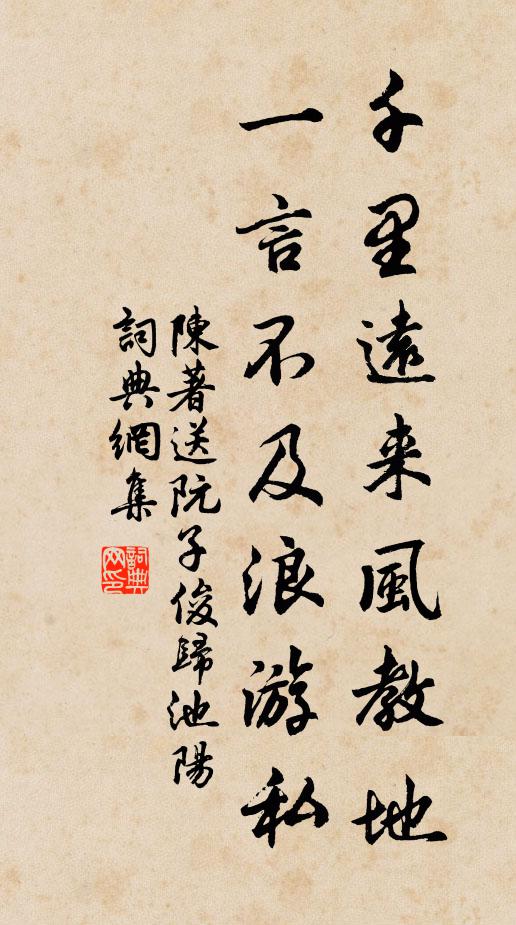 千里遠来風教地
一言不及浪游私
陳著送阮子俊歸池陽
詞典網集
詞典网印